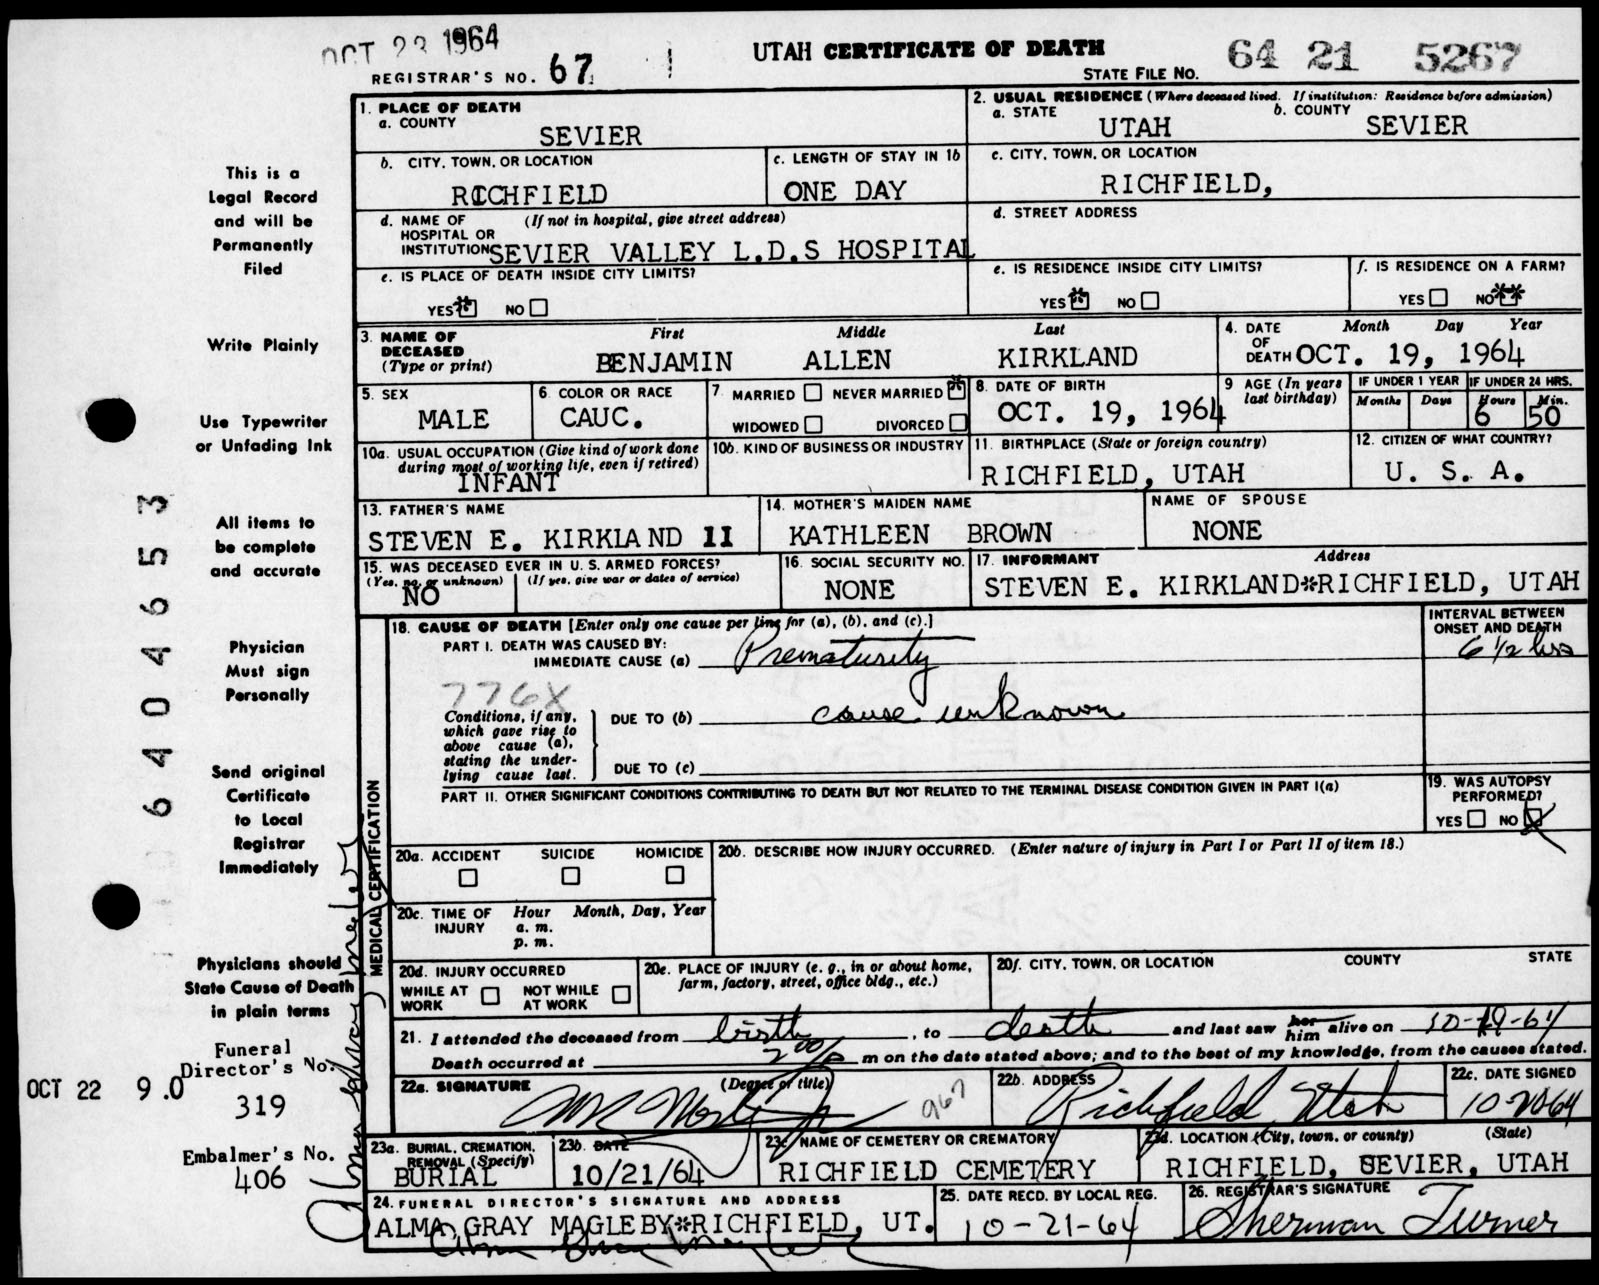 OCT 23 1964
UTAH CERTIFICATE OF DEATH
64 21 5267
REGISTRAR'S NO. 67
STATE FILE NO.
1. PLACE OF DEATH
a. COUNTY
SEVIER
2. USUAL RESIDENCE (Where deceased lived. If institution: Residence before admission)
a. STATE
UTAH
b. COUNTY
SEVIER
b. CITY, TOWN, OR LOCATION
RICHFIELD
c. LENGTH OF STAY IN 1b
ONE DAY
c. CITY, TOWN, OR LOCATION
RICHFIELD,
d. NAME OF HOSPITAL OR INSTITUTION
(If not in hospital, give street address)
SEVIER VALLEY L.D.S HOSPITAL
d. STREET ADDRESS
e. IS PLACE OF DEATH INSIDE CITY LIMITS?
YES NO
e. IS RESIDENCE INSIDE CITY LIMITS?
YES NO
f. IS RESIDENCE ON A FARM?
YES NO
3. NAME OF DECEASED
(Type or print)
First Middle Last
BENJAMIN ALLEN KIRKLAND
4. DATE OF DEATH
Month Day Year
OCT. 19, 1964
5. SEX
MALE
6. COLOR OR RACE
CAUC.
7. MARRIED NEVER MARRIED
WIDOWED DIVORCED
8. DATE OF BIRTH
OCT. 19, 1964
9 AGE (In years last birthday)
IF UNDER 1 YEAR
Months Days
IF UNDER 24 HRS.
Hours Min.
6 50
10a. USUAL OCCUPATION (Give kind of work done during most of working life, even if retired)
INFANT
10b. KIND OF BUSINESS OR INDUSTRY
11. BIRTHPLACE (State or foreign country)
RICHFIELD, UTAH
12. CITIZEN OF WHAT COUNTRY?
U. S. A.
13. FATHER'S NAME
STEVEN E. KIRKLAND II
14. MOTHER'S MAIDEN NAME
KATHLEEN BROWN
NAME OF SPOUSE
NONE
15. WAS DECEASED EVER IN U. S. ARMED FORCES?
(Yes, no, or unknown) (If yes, give war or dates of service)
NO
16. SOCIAL SECURITY NO.
NONE
17. INFORMANT Address
STEVEN E. KIRKLAND*RICHFIELD, UTAH
18. CAUSE OF DEATH [Enter only one cause per line for (a), (b), and (c).]
INTERVAL BETWEEN ONSET AND DEATH
PART I. DEATH WAS CAUSED BY:
IMMEDIATE CAUSE (a) Prematurity
6 1/2 hrs
776X
Conditions, if any, which gave rise to above cause (a), stating the underlying cause last.
DUE TO (b) cause unknown
DUE TO (c)
PART II. OTHER SIGNIFICANT CONDITIONS CONTRIBUTING TO DEATH BUT NOT RELATED TO THE TERMINAL DISEASE CONDITION GIVEN IN PART I(a)
19. WAS AUTOPSY PERFORMED?
YES NO
MEDICAL CERTIFICATION
20a. ACCIDENT SUICIDE HOMICIDE
20b. DESCRIBE HOW INJURY OCCURRED. (Enter nature of injury in Part I or Part II of item 18.)
20c. TIME OF INJURY
Hour Month, Day, Year
a. m.
p. m.
20d. INJURY OCCURRED
WHILE AT WORK NOT WHILE AT WORK
20e. PLACE OF INJURY (e. g., in or about home, farm, factory, street, office bldg., etc.)
20f. CITY, TOWN, OR LOCATION COUNTY STATE
21. I attended the deceased from birth, to death and last saw her him alive on 10-19-64
Death occurred at 2 00/P m on the date stated above; and to the best of my knowledge, from the causes stated.
22a. SIGNATURE (Degree or title)
967
22b. ADDRESS
Richfield Utah
22c. DATE SIGNED
10-20-64
23a. BURIAL, CREMATION, REMOVAL (Specify)
BURIAL
23b. DATE
10/21/64
23c. NAME OF CEMETERY OR CREMATORY
RICHFIELD CEMETERY
23d. LOCATION (City, town, or county) (State)
RICHFIELD, SEVIER, UTAH
24. FUNERAL DIRECTOR'S SIGNATURE AND ADDRESS
ALMA GRAY MAGLEBY*RICHFIELD, UT.
25. DATE RECD. BY LOCAL REG.
10-21-64
26. REGISTRAR'S SIGNATURE
Sherman Turner
This is a
Legal Record
and will be
Permanently
Filed
Write Plainly
Use Typewriter
or Unfading Ink
All items to
be complete
and accurate
Physician
Must sign
Personally
Send original
Certificate
to Local
Registrar
Immediately
Physicians should
State Cause of Death
in plain terms
Funeral
Director's No.
319
Embalmer's No.
406
OCT 22 9.0
6404653